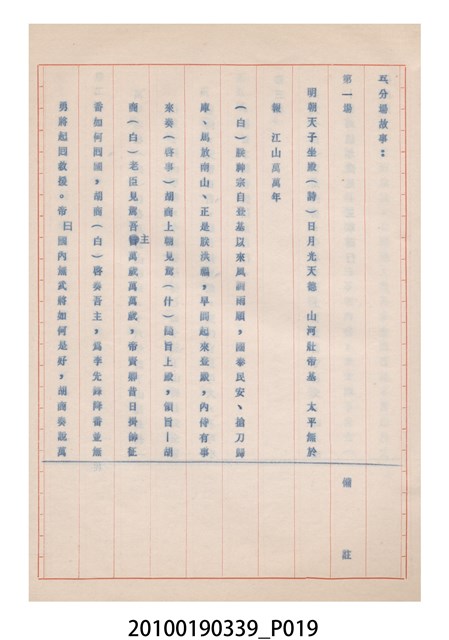 五分場故事：
第一場
備註
明朝天子坐殿(詩)日月光天德 山河壯帝基 太平無於
報 江山萬萬年
(白)朕神宗自登基以來風調雨順，國泰民安、搶刀歸
庫、馬放南山、正是朕洪福，早間起來登殿，內侍有事
來奏(啓事)胡商上朝見駕(什)隨旨上殿，領旨—胡
商(白)老臣見駕吾主萬歲萬萬歲，帝賣聊昔日掛帥征
番如何囘國，胡商(白)啓奏吾主，為李先鋒降番並無
勇將起囘救援。帝曰國內無武將如何是好，胡商奏說萬
20100190339_P019